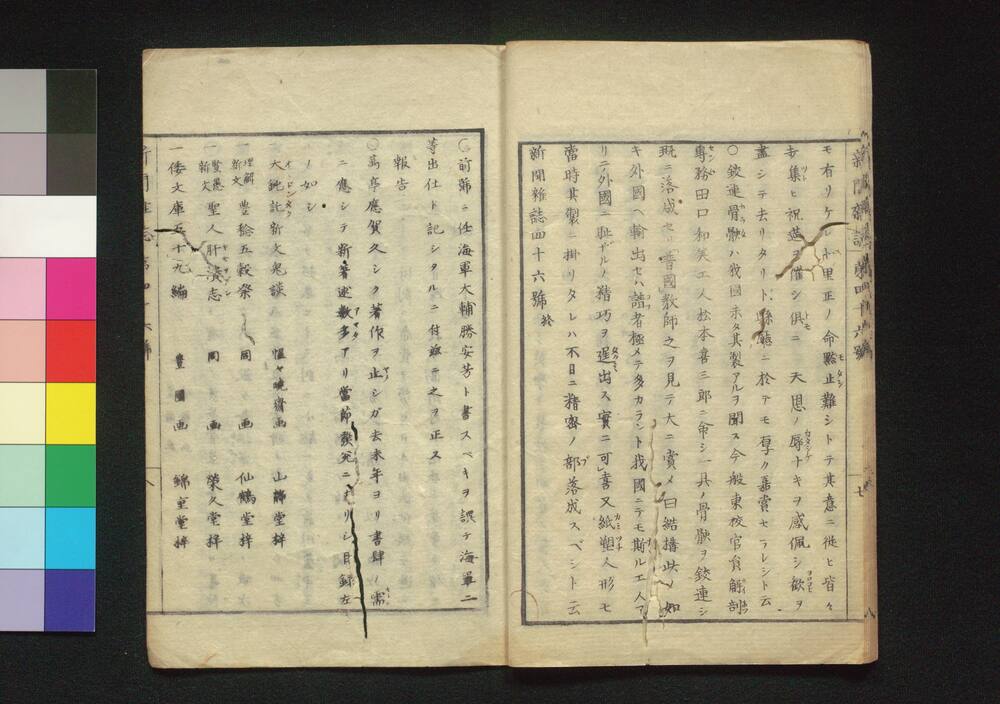 モ有リケレ𪜈里正ノ命黙止難シトテ其意ニ従ヒ皆々
寺集ヒ祝莚ヲ催シ俱ニ 天恩ノ辱ナキヲ感佩シ歓ヲ
盡シテ去リタリト縣廳ニ於テモ厚ク嘉賞セラレシト云
○鉸連骨骸ハ我國未タ其製アルヲ聞ス今般東校官員解剖
專務田口和美工人松本喜三郎ニ命シ一具ノ骨骸ヲ鉸連シ
既ニ落成ス 普國教師之ヲ見テ大ニ賞メ曰結搆此ノ如
キ外國ヘ輸出セハ諸者極メテ多カラント我國ニテモ斯ル工人ア
リニ外國ニ耻ザルノ精巧ヲ逞出ス實ニ可喜又紙塑人形モ
當時其製ニ掛リタレハ不日ニ精密ノ部落成スベシト云
新聞雜誌四十六號終
新聞雜誌 第四十六號
七
○前第ニ任海軍大輔勝安芳ト書スベキヲ誤テ海軍二
等出仕ト記シタルニ付茲ニ之ヲ正ス
報告
○萬亭應賀久シク著作ヲ止シガ去未年ヨリ書肆ノ需
ニ應シテ新著述數多アリ當節發兌ニナリシ目録左
ノ如シ
一大鈍託新文鬼談 惺々暁齋画 山静堂梓
一理解新文 豊稔五穀祭 同 画 仙鶴堂梓
一賢愚新文 聖人肝潰志 同 画 榮久堂梓
一倭文庫五十九編 豊國画 錦重堂梓
新聞雜誌 第四十六號
八